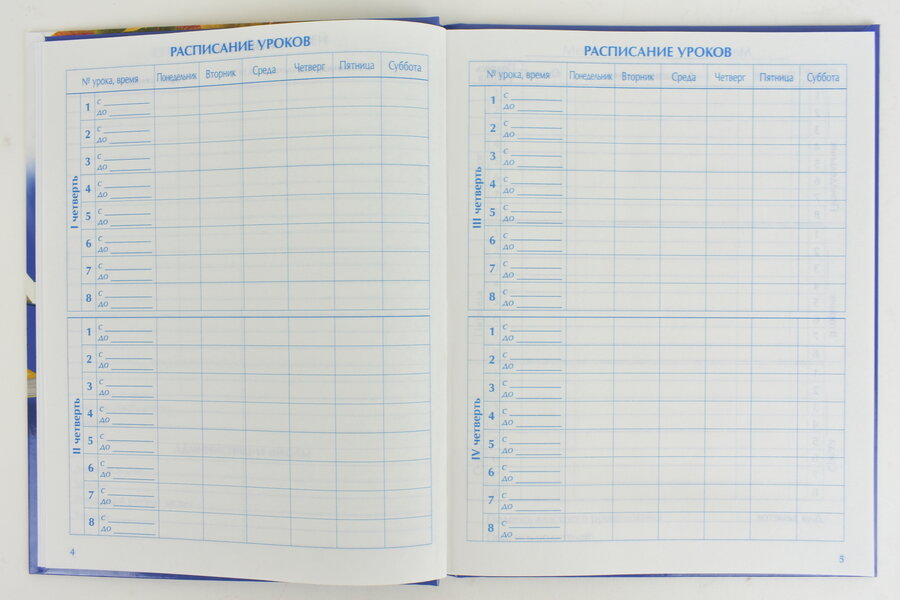 РАСПИСАНИЕ УРОКОВ
№ урока, время Понедельник Вторник Среда Четверг Пятница Суббота
I четверть
1 с
до
2 с
до
3 с
до
4 с
до
5 с
до
6 с
до
7 с
до
8 с
до
II четверть
1 с
до
2 с
до
3 с
до
4 с
до
5 с
до
6 с
до
7 с
до
8 с
до
4
РАСПИСАНИЕ УРОКОВ
№ урока, время Понедельник Вторник Среда Четверг Пятница Суббота
III четверть
1 с
до
2 с
до
3 с
до
4 с
до
5 с
до
6 с
до
7 с
до
8 с
до
IV четверть
1 с
до
2 с
до
3 с
до
4 с
до
5 с
до
6 с
до
7 с
до
8 с
до
5